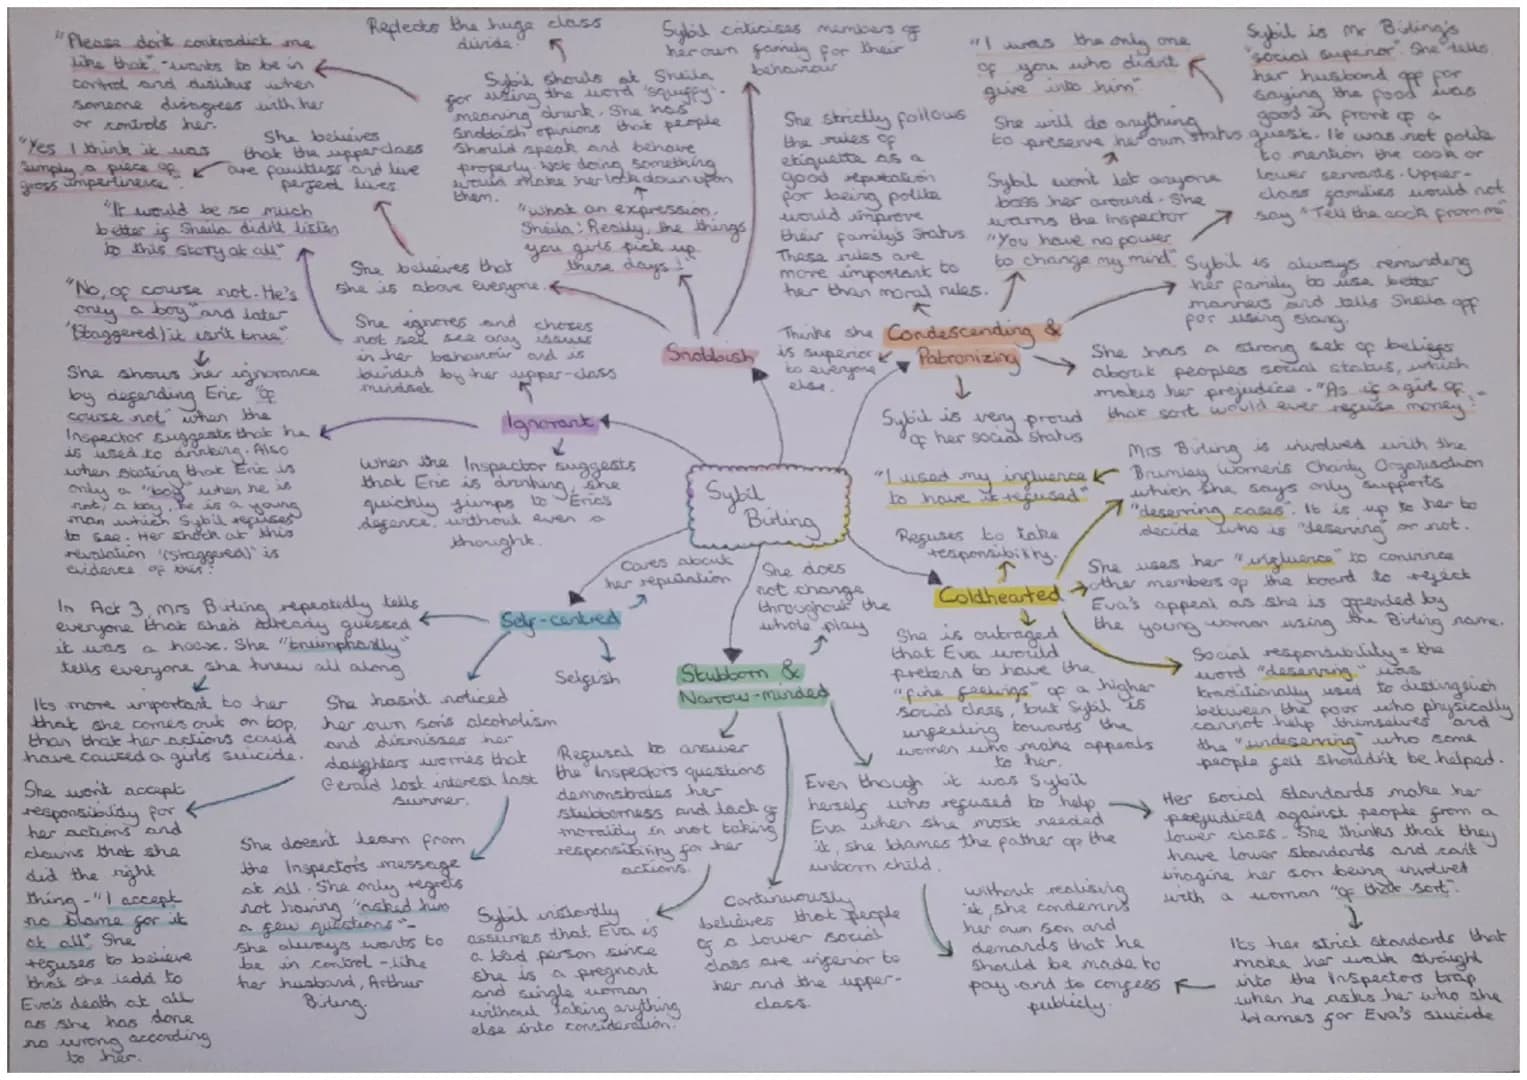 "Please don't contradict me
like that" - wants to be in
control and dislikes when
someone disagrees with her
or controls her.
Reflects the huge class
divide.
Sybil criticises members of
her own family for their
behaviour
"I was the only one
of you who didn't
give into him"
Sybil is Mr Birling's
"social superior". She tells
her husband off for
saying the food was
good in front of a
guest. It was not polite
to mention the cook or
lower servants. Upper-
class families would not
say "Tell the cook from me"
Sybil shouts at Sheila
for using the word 'squiffy'.
meaning drunk. She has
snobbish opinions that people
should speak and behave
properly. Not doing something
would make her look down upon
them.
She strictly follows
the rules of
etiquette as a
good reputation
for being polite
would improve
their family's status
These rules are
more important to
her than moral rules.
She will do anything
to preserve her own status
"Yes I think it was
simply a piece of
gross impertinence.
She believes
that the upperclass
are faultless and live
perfect lives
Sybil won't let anyone
boss her around. She
warns the Inspector
"You have no power
to change my mind"
"It would be so much
better if Sheila didn't listen
to this story at all"
"what an expression,
Sheila! Really, the things
you girls pick up
these days!
She believes that
she is above everyone.
Sybil is always reminding
her family to use better
manners and tells Sheila off
for using slang.
"No, of course not. He's
only a boy" and later
'(staggered) it isn't true"
She ignores and choses
not see see any issues
in her behaviour and is
blinded by her upper-class
mindset
Snobbish
Thinks she
is superior
to everyone
else.
Condescending &
Patronizing
She has a strong set of beliefs
about peoples social status, which
makes her prejudice. "As if a girl of
that sort would ever refuse money!"-
She shows her ignorance
by defending Eric "of
couse not" when the
Inspector suggests that he
is used to drinking. Also
when stating that Eric is
only a "boy" when he is
not, a boy, he is a young
man which Sybil refuses
to see. Her shock at this
revalation '(staggered)' is
evidence of this.
Ignorant
When the Inspector suggests
that Eric is drinking, she
quickly jumps to Eric's
defence, without even a
thought.
Sybil is very proud
of her social status
Sybil
Birling
"I used my influence
to have it refused"
Mrs Birling is involved with the
Brumley Women's Charity Organisation
which she says only supports
"deserving cases". It is up to her to
decide who is "deserving" or not.
Refuses to take
responsibility.
Coldhearted
She uses her "influence" to convince
other members of the board to reject
Eva's appeal as she is offended by
the young woman using the Birling name.
Cares about
her reputation
She does
not change
throughout the
whole play
In Act 3, Mrs Birling repeatedly tells
everyone that she'd already guessed
it was a hoax. She "triumphantly"
tells everyone she knew all along
Self-centred
Selfish
Stubborn &
Narrow-minded
She is outraged
that Eva would
pretend to have the
"fine feelings" of a higher
social class, but Sybil is
unfeeling towards the
women who make appeals
to her.
Social responsibility = the
word "deserving" was
traditionally used to distinguish
between the poor who physically
cannot help themselves and
the "undeserving" who some
people felt shouldn't be helped.
Its more important to her
that she comes out on top,
than that her actions could
have caused a girls suicide.
She hasn't noticed
her own son's alcoholism
and dismisses her
daughters worries that
Gerald lost interest last
summer.
Refusal to answer
the Inspectors questions
demonstrates her
stubborness and lack of
morality in not taking
responsibility for her
actions.
Even though it was Sybil
herself who refused to help
Eva when she most needed
it, she blames the father of the
unborn child.
Her social standards make her
prejudiced against people from a
lower class. She thinks that they
have lower standards and can't
imagine her son being involved
with a woman "of that sort".
She won't accept
responsibility for
her actions and
claims that she
did the right
thing - "I accept
no blame for it
at all". She
refuses to believe
that she led to
Eva's death at all
as she has done
no wrong according
to her.
She doesn't learn from
the Inspector's message
at all. She only regrets
not having "asked him
a few questions"-
she always wants to
be in control - like
her husband, Arthur
Birling.
Sybil instantly
assumes that Eva is
a bad person since
she is a pregnant
and single woman
without taking anything
else into consideration.
Continuously
believes that people
of a lower social
class are inferior to
her and the upper-
class.
without realising
it, she condemns
her own son and
demands that he
should be made to
pay and to confess
publicly.
Its her strict standards that
make her walk straight
into the Inspectors trap
when he asks her who she
blames for Eva's suicide